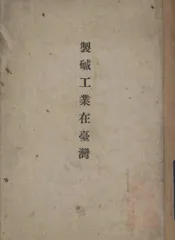 製碱工業在臺灣